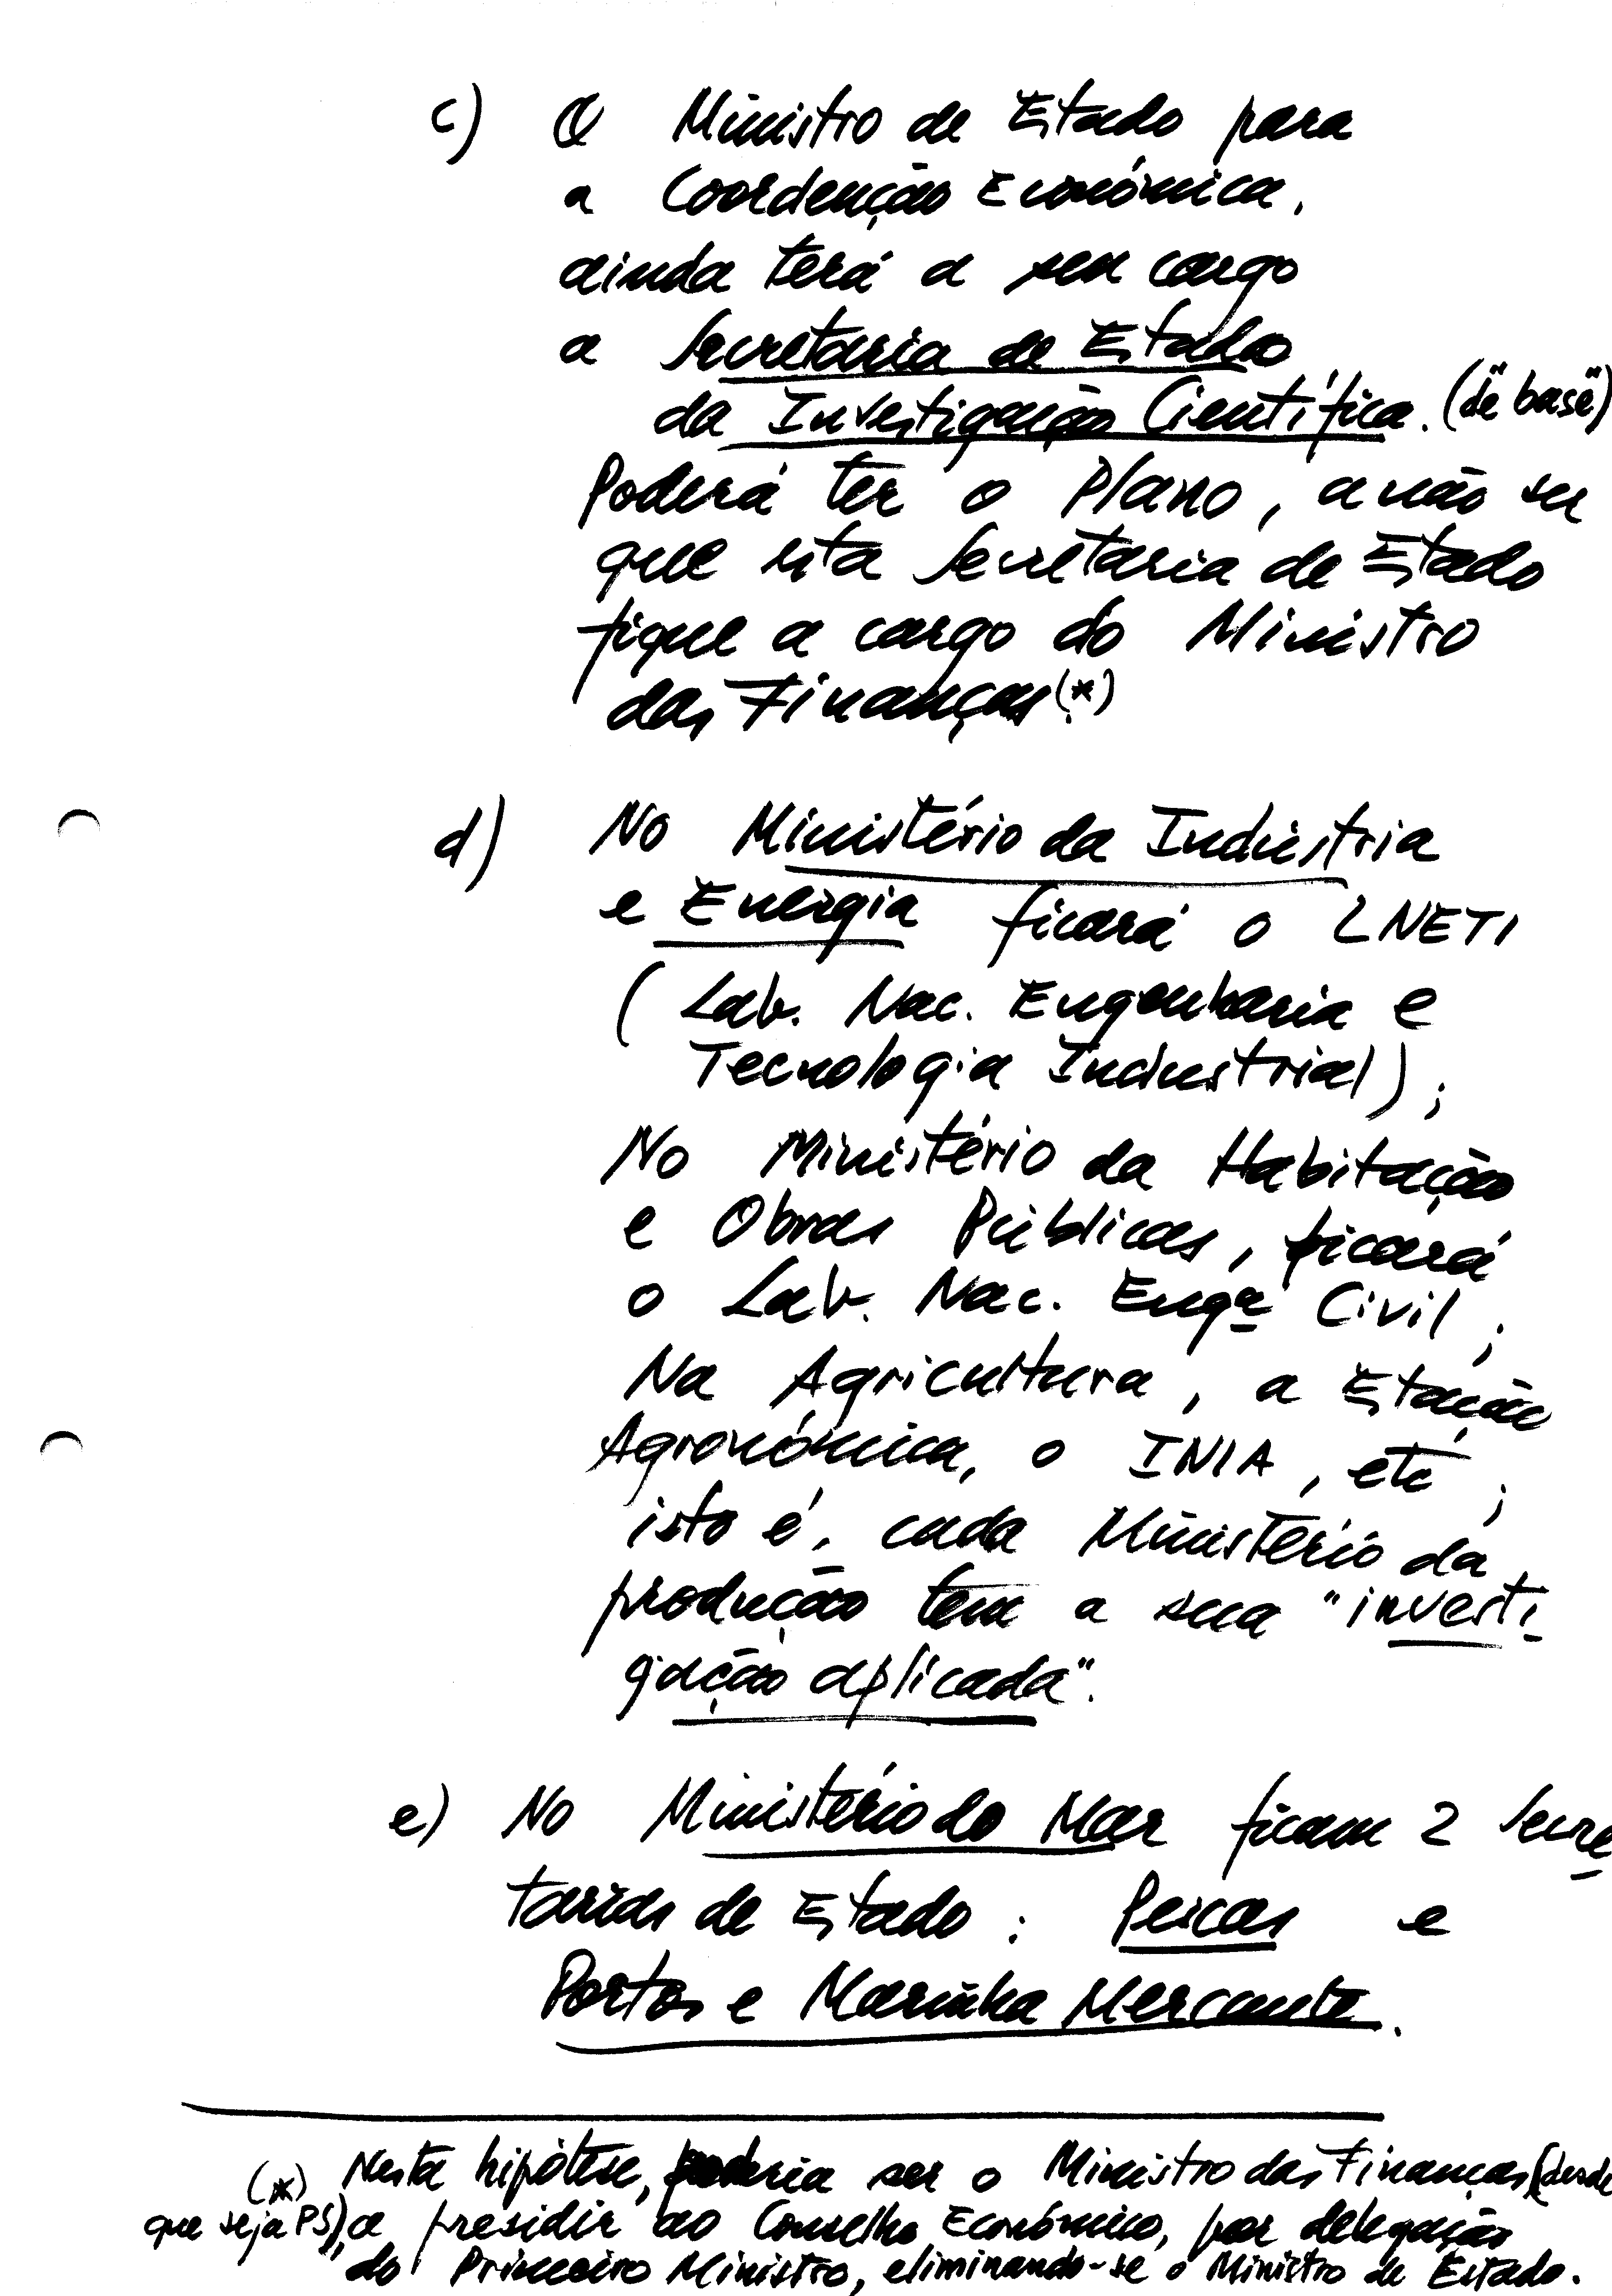 c) O Ministro de Estado para
a Coordenção Económica,
ainda terá a seu cargo
a Secretaria de Estado
da Investigação Científica. ("de base")
Poderá ter o Plano, a não ser
que esta Secretaria de Estado
fique a cargo do Ministro
das Finanças (*)
d) No Ministério da Indústria
e Energia ficará o LNETI
(Lab. Nac. Engenharia e
Tecnologia Industrial);
No Ministério da Habitação
e Obras Públicas, ficará
o Lab. Nac. Engª Civil;
Na Agricultura, a Estação
Agronómica, o INIA, etc;
isto é, cada Ministério da
produção tem a sua "investi-
gação aplicada".
e) No Ministério do Mar ficam 2 Secre-
tarias de Estado: Pescas e
Portos e Marinha Mercante.
(*) Nesta hipótese, poderia ser o Ministro das Finanças (desde
que seja PS), a presidir ao Conselho Económico, por delegação
do Primeiro Ministro, eliminando-se o Ministro de Estado.